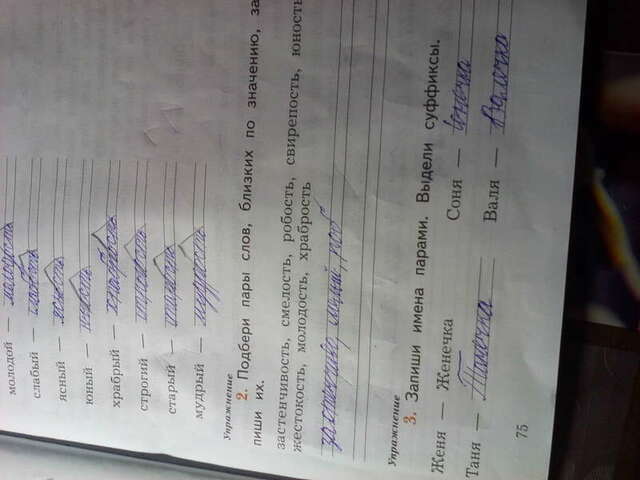 молодой — молодость
слабый — слабость
ясный — ясность
юный — юность
храбрый — храбрость
строгий — строгость
старый — старость
мудрый — мудрость
Упражнение
2. Подбери пары слов, близких по значению, за
пиши их.
застенчивость, смелость, робость, свирепость, юность
жестокость, молодость, храбрость
Упражнение
3. Запиши имена парами. Выдели суффиксы.
Женя — Женечка Соня — Сонечка
Таня — Танечка Валя — Валечка
75